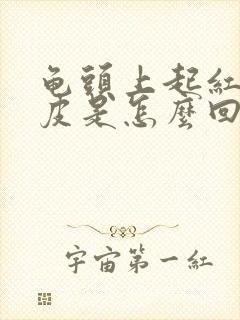 龟頭上起紅
皮是怎麼回
宇宙第一紅